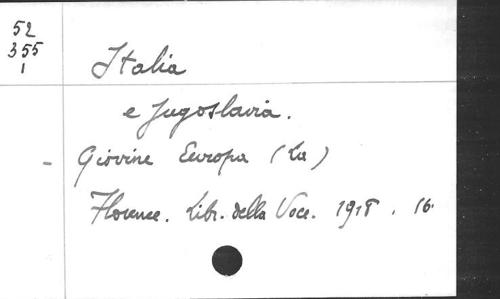 52
355
1
Italia
e Jugoslavia.
- Giovine Europa (La)
Florence. Libr. della Voce. 1918. 16.